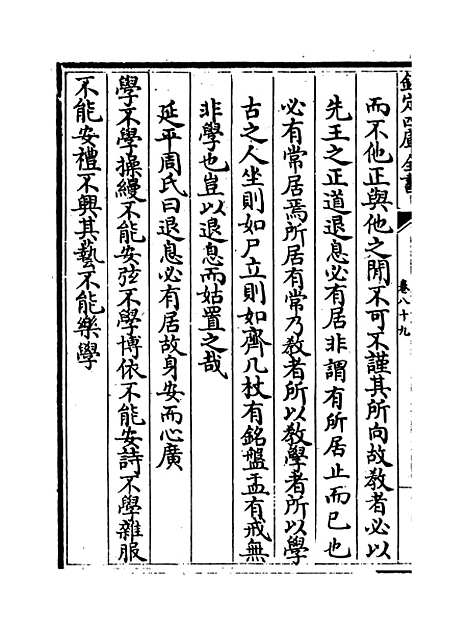 欽定四庫全書
卷八十九
而不他正與他之閒不可不謹其所向故教者必以
先王之正道退息必有居非謂有所居止而已也
必有常居焉所居有常乃教者所以教學者所以學
古之人坐則如尸立則如齊几杖有銘盤盂有戒無
非學也豈以退息而姑置之哉
延平周氏曰退息必有居故身安而心廣
學不學操縵不能安弦不學博依不能安詩不學雜服
不能安禮不興其藝不能樂學